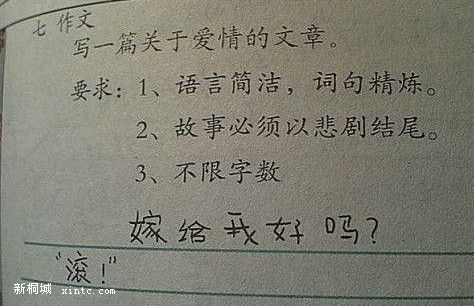 七 作文
写一篇关于爱情的文章。
要求：1、语言简洁，词句精炼。
2、故事必须以悲剧结尾。
3、不限字数
嫁给我好吗？
“滚！”
新桐城 xintc.com